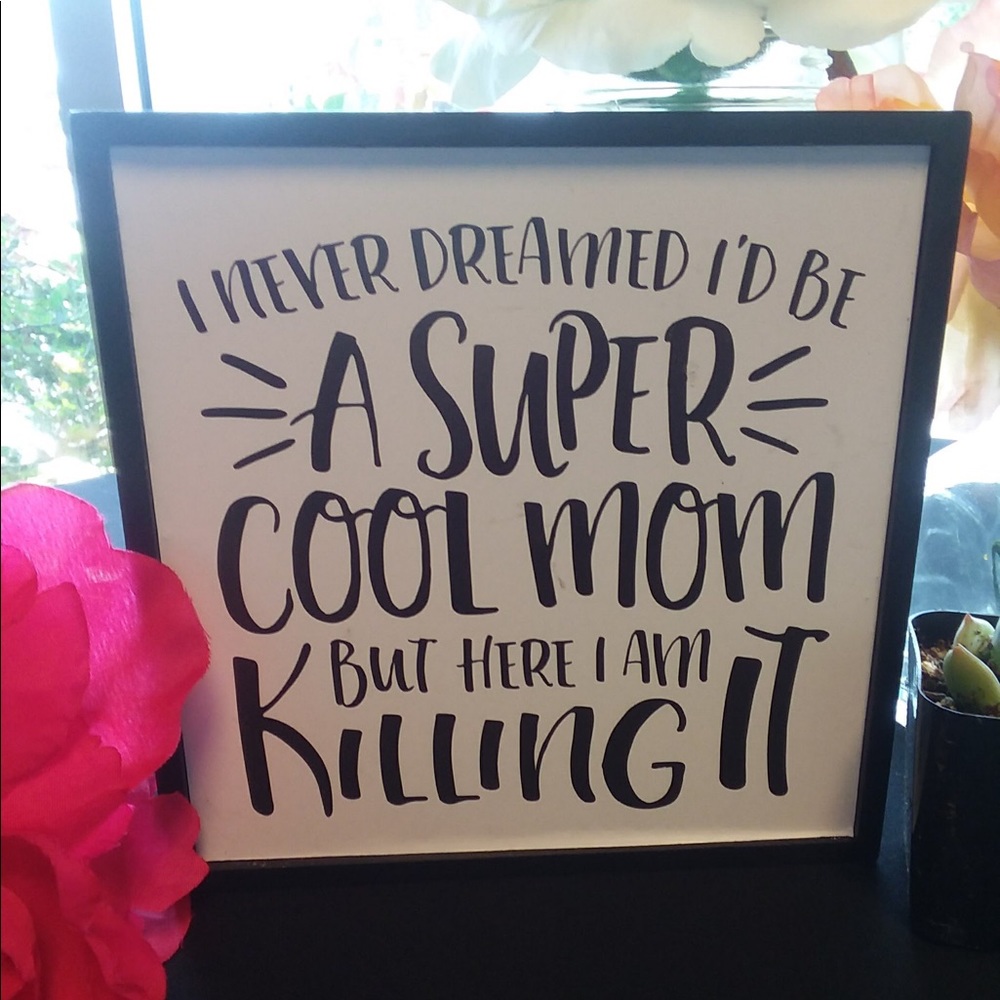 I NEVER DREAMED I'D BE
A SUPER
COOL MOM
BUT HERE I AM
KILLING IT